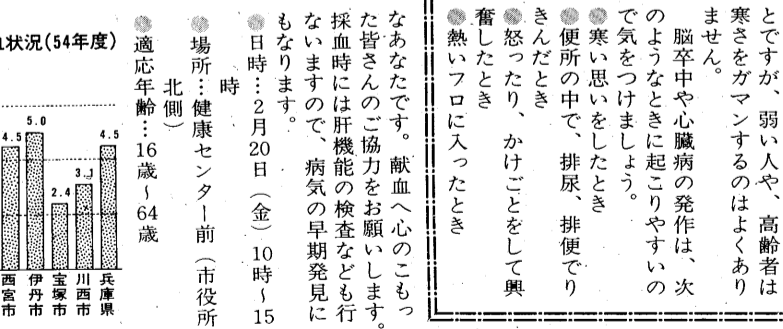 とですが、弱い人や、高齢者は
寒さをガマンするのはよくあり
ません。
脳卒中や心臓病の発作は、次
のようなときに起こりやすいの
で気をつけましょう。
●寒い思いをしたとき
●便所の中で、排尿、排便でり
きんだとき
●怒ったり、かけごとをして興
奮したとき
●熱いフロに入ったとき
なあなたです。献血へ心のこもっ
た皆さんのご協力をお願いします。
採血時には肝機能の検査なども行
ないますので、病気の早期発見に
もなります。
●日時…2月20日（金）10時～15
時
●場所…健康センター前（市役所
北側）
●適応年齢…16歳～64歳
状況(54年度)
4.5
5.0
2.4
3.1
4.5
西宮市
伊丹市
宝塚市
川西市
兵庫県